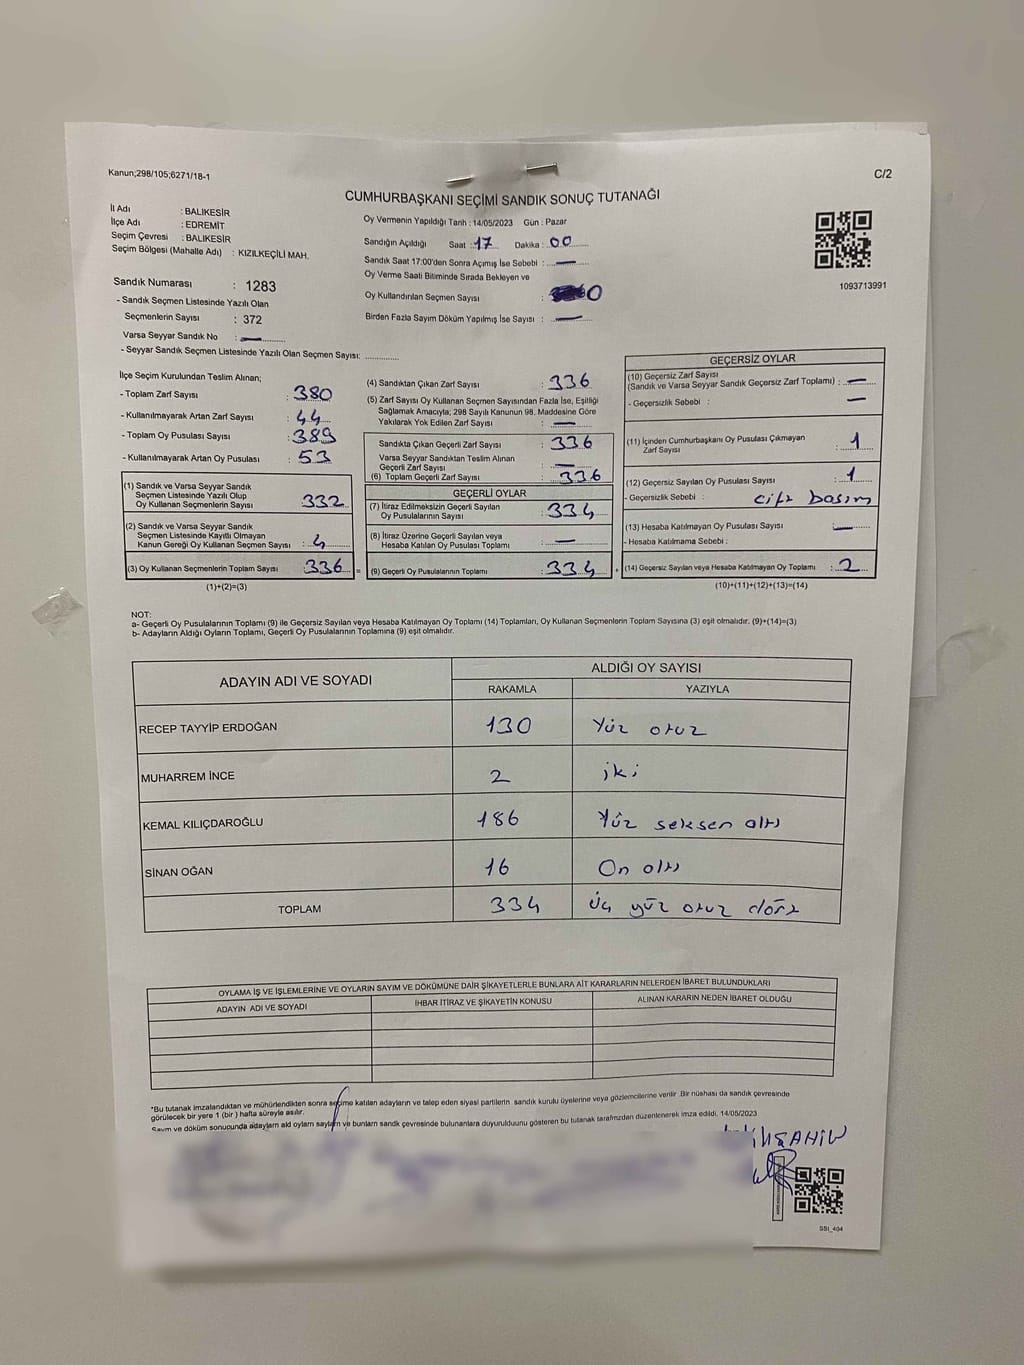 Kanun;298/105;6271/18-1
C/2
CUMHURBAŞKANI SEÇİMİ SANDIK SONUÇ TUTANAĞI
İl Adı : BALIKESİR
İlçe Adı : EDREMİT
Seçim Çevresi : BALIKESİR
Seçim Bölgesi (Mahalle Adı) : KIZILKEÇİLİ MAH.
Oy Vermenin Yapıldığı Tarih : 14/05/2023 Gün : Pazar
Sandığın Açıldığı Saat : 17 Dakika : 00
Sandık Saat 17:00'den Sonra Açımış İse Sebebi : —
Oy Verme Saati Bitiminde Sırada Bekleyen ve
Oy Kullandırılan Seçmen Sayısı : 0
Birden Fazla Sayım Döküm Yapılmış İse Sayısı : —
1093713991
Sandık Numarası : 1283
- Sandık Seçmen Listesinde Yazılı Olan
Seçmenlerin Sayısı : 372
Varsa Seyyar Sandık No : —
- Seyyar Sandık Seçmen Listesinde Yazılı Olan Seçmen Sayısı:
İlçe Seçim Kurulundan Teslim Alınan;
- Toplam Zarf Sayısı : 380
- Kullanılmayarak Artan Zarf Sayısı : 44
- Toplam Oy Pusulası Sayısı : 389
- Kullanılmayarak Artan Oy Pusulası : 53
(1) Sandık ve Varsa Seyyar Sandık
Seçmen Listesinde Yazılı Olup
Oy Kullanan Seçmenlerin Sayısı : 332
(2) Sandık ve Varsa Seyyar Sandık
Seçmen Listesinde Kayıtlı Olmayan
Kanun Gereği Oy Kullanan Seçmen Sayısı : 4
(3) Oy Kullanan Seçmenlerin Toplam Sayısı : 336
(1)+(2)=(3)
(4) Sandıktan Çıkan Zarf Sayısı : 336
(5) Zarf Sayısı Oy Kullanan Seçmen Sayısından Fazla İse, Eşitliği
Sağlamak Amacıyla; 298 Sayılı Kanunun 98. Maddesine Göre
Yakılarak Yok Edilen Zarf Sayısı : —
Sandıkta Çıkan Geçerli Zarf Sayısı : 336
Varsa Seyyar Sandıktan Teslim Alınan
Geçerli Zarf Sayısı : —
(6) Toplam Geçerli Zarf Sayısı : 336
GEÇERLİ OYLAR
(7) İtiraz Edilmeksizin Geçerli Sayılan
Oy Pusulalarının Sayısı : 334
(8) İtiraz Üzerine Geçerli Sayılan veya
Hesaba Katılan Oy Pusulası Toplamı : —
= (9) Geçerli Oy Pusulalarının Toplamı : 334 +
GEÇERSİZ OYLAR
(10) Geçersiz Zarf Sayısı
(Sandık ve Varsa Seyyar Sandık Geçersiz Zarf Toplamı) : —
- Geçersizlik Sebebi : —
(11) İçinden Cumhurbaşkanı Oy Pusulası Çıkmayan
Zarf Sayısı : 1
(12) Geçersiz Sayılan Oy Pusulası Sayısı : 1
- Geçersizlik Sebebi : cift basım
(13) Hesaba Katılmayan Oy Pusulası Sayısı : —
- Hesaba Katılmama Sebebi :
(14) Geçersiz Sayılan veya Hesaba Katılmayan Oy Toplamı : 2
(10)+(11)+(12)+(13)=(14)
NOT:
a- Geçerli Oy Pusulalarının Toplamı (9) ile Geçersiz Sayılan veya Hesaba Katılmayan Oy Toplamı (14) Toplamları, Oy Kullanan Seçmenlerin Toplam Sayısına (3) eşit olmalıdır. (9)+(14)=(3)
b- Adayların Aldığı Oyların Toplamı, Geçerli Oy Pusulalarının Toplamına (9) eşit olmalıdır.
ADAYIN ADI VE SOYADI ALDIĞI OY SAYISI
RAKAMLA YAZIYLA
RECEP TAYYİP ERDOĞAN 130 Yüz otuz
MUHARREM İNCE 2 iki
KEMAL KILIÇDAROĞLU 186 Yüz seksen altı
SİNAN OĞAN 16 On altı
TOPLAM 334 üç yüz otuz dört
OYLAMA İŞ VE İŞLEMLERİNE VE OYLARIN SAYIM VE DÖKÜMÜNE DAİR ŞİKAYETLERLE BUNLARA AİT KARARLARIN NELERDEN İBARET BULUNDUKLARI
ADAYIN ADI VE SOYADI İHBAR İTİRAZ VE ŞİKAYETİN KONUSU ALINAN KARARIN NEDEN İBARET OLDUĞU
*Bu tutanak imzalandıktan ve mühürlendikten sonra seçime katılan adayların ve talep eden siyasi partilerin sandık kurulu üyelerine veya gözlemcilerine verilir .Bir nüshası da sandık çevresinde
görülecek bir yere 1 (bir ) hafta süreyle asılır.
Sayım ve döküm sonucunda adayların ald oyların sayıları ve bunların sandık çevresinde bulunanlara duyurulduğunu gösteren bu tutanak tarafımızdan düzenlenerek imza edildi. 14/05/2023
SSI_404